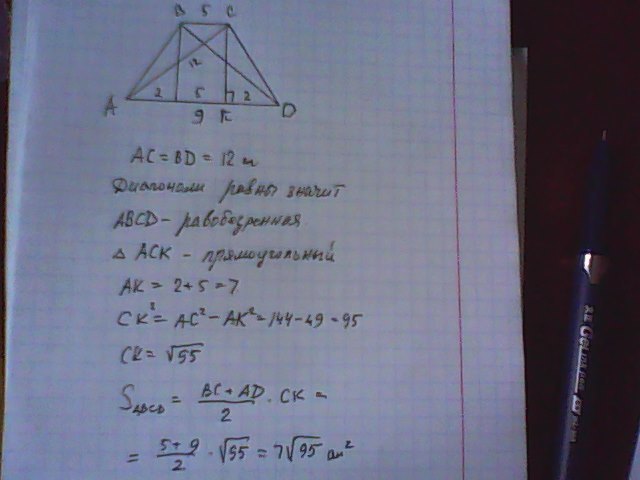 B 5 C
12
A 2 5 2 D
9 K
AC = BD = 12 м
Диагонали равны значит
ABCD - равобозренная
△ ACK - прямоугольный
AK = 2+5 = 7
CK² = AC² - AK² = 144 - 49 = 95
CK = √95
S_ABCD = (BC + AD)/2 · CK =
= (5+9)/2 · √95 = 7√95 см²